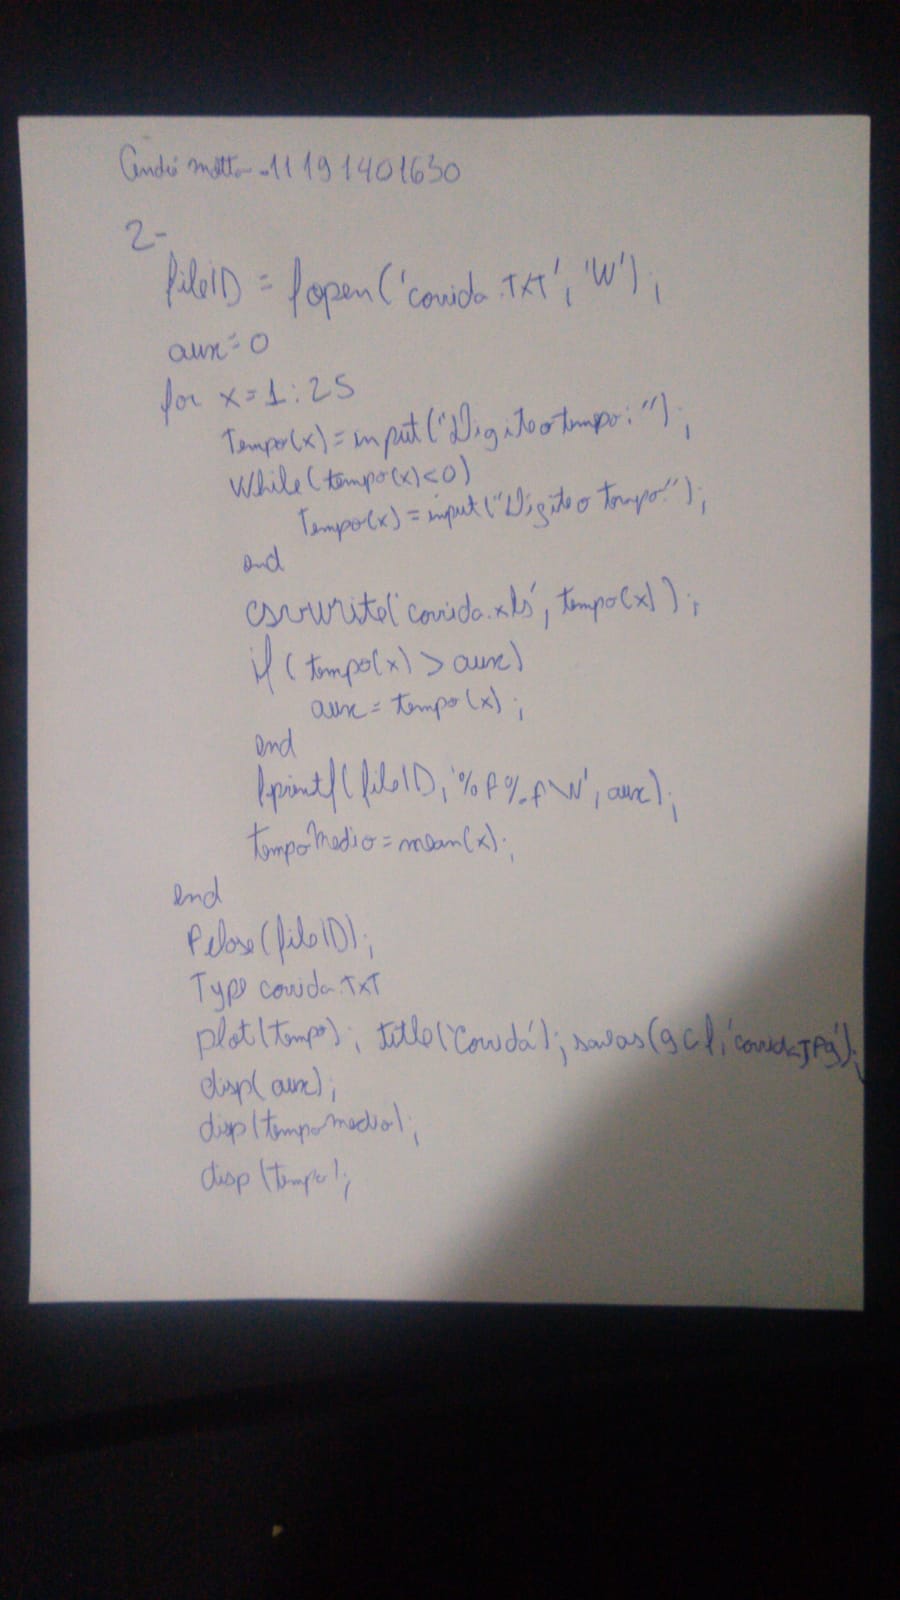 André Motta - 11191401630
2-
fileID = fopen('corrida.TXT', 'W');
aux=0
for x=1:25
Tempo(x)=input("Digite o tempo:");
While(tempo(x)<0)
Tempo(x)=input("Digite o tempo:");
end
csvwrite('corrida.xls', tempo(x));
if(tempo(x) > aux)
aux = tempo(x);
end
fprintf(fileID, '%f %f\N', aux);
tempoMedio=mean(x);
end
Fclose(fileID);
Type corrida.TXT
plot(tempo); title('Corrida'); saveas(gcf,'corrida.JPg');
disp(aux);
disp(tempomedio);
disp(tempo);